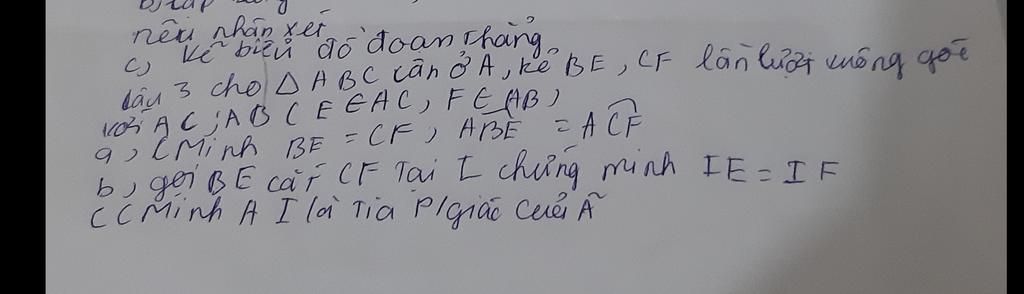 b, lập
nêu nhận xét
c, vẽ biểu đồ đoạn thẳng
câu 3 cho △ ABC cân ở A, kẻ BE, CF lần lượt vuông góc
với AC; AB ( E ∈ AC, F ∈ AB)
a, CMinh BE = CF, ABE = ACF
b, gọi BE cắt CF Tại I chứng minh IE = IF
C CMinh A I là Tia P/giác của A